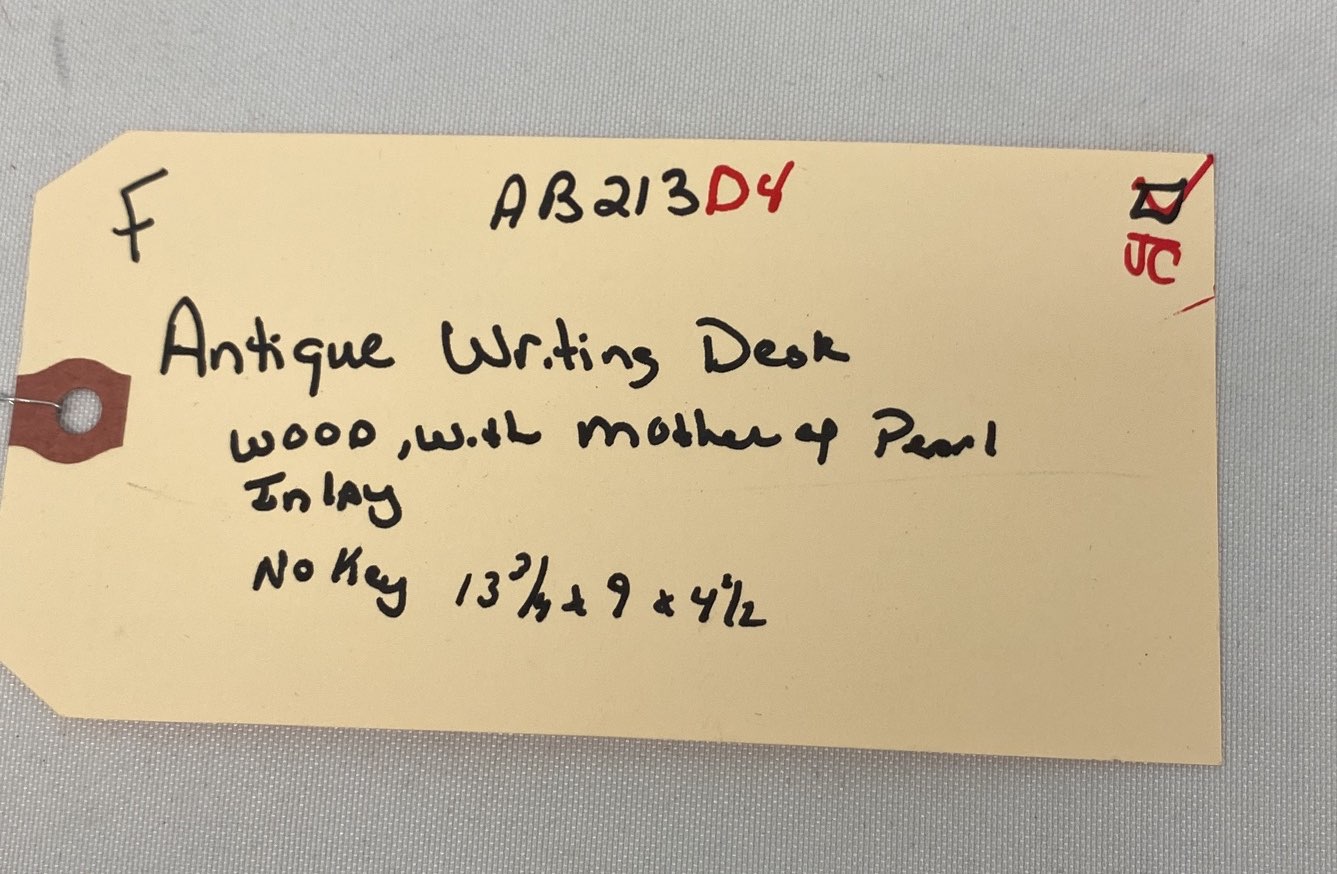 F AB213D4
JC
Antique Writing Desk
WOOD, with mother of Pearl
Inlay
No Key 13 3/4 x 9 x 4 1/2